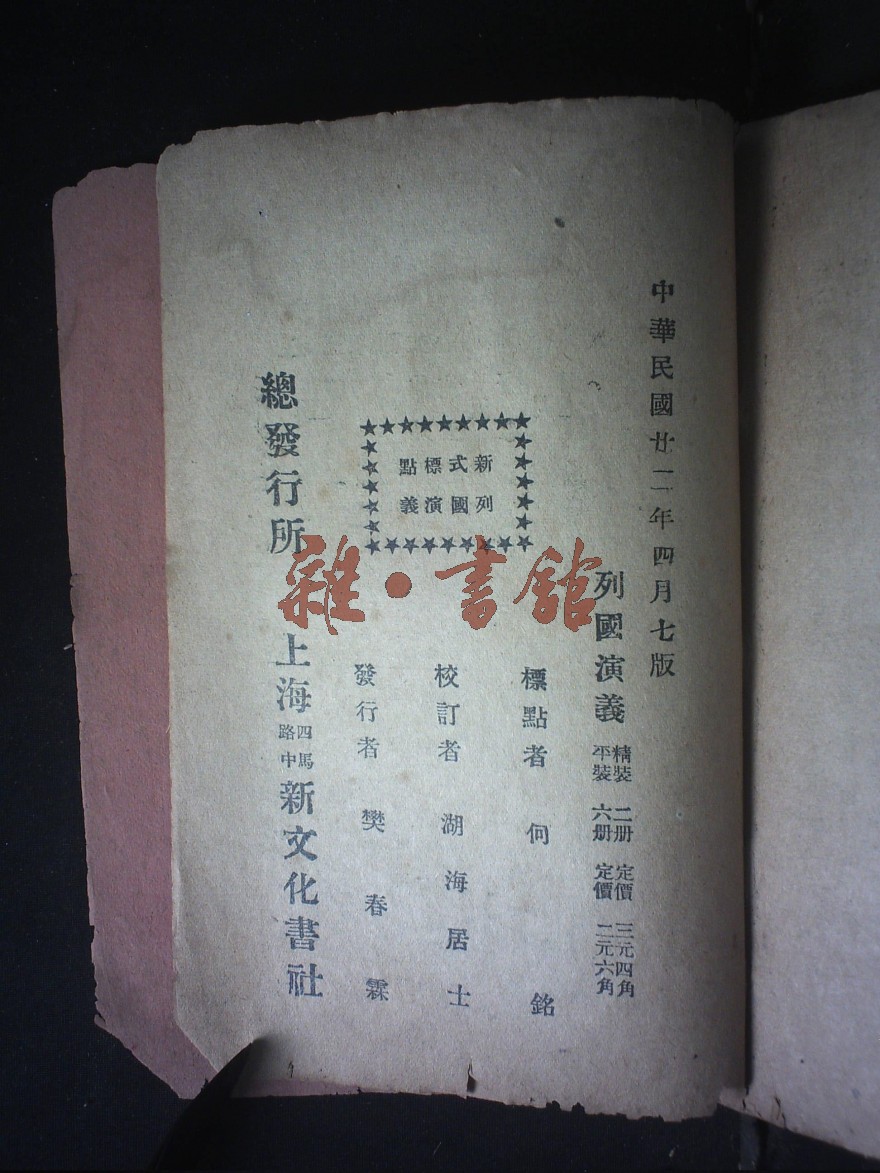 中華民國廿二年四月七版
列國演義
精裝 二册 定價 三元四角
平裝 六册 定價 二元六角
標點者 何銘
校訂者 湖海居士
發行者 樊春霖
新列
式國
標演
點義
總發行所 上海 四馬路中 新文化書社
雜·書館